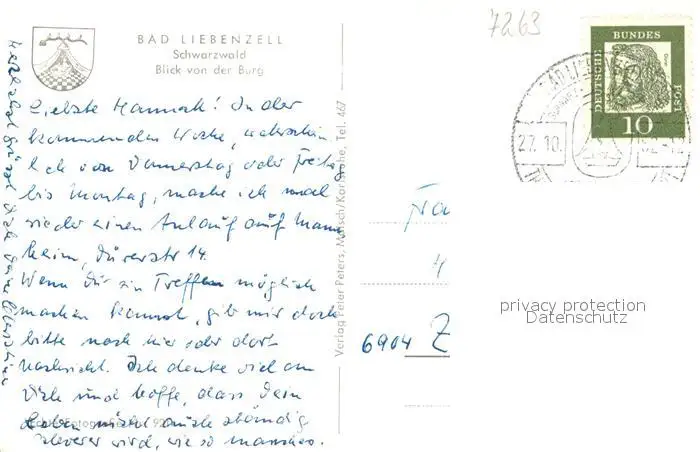 7263
BAD LIEBENZELL
Schwarzwald
Blick von der Burg
DEUTSCHE BUNDES POST
Dürer
10
BAD LIEBENZELL
27.10.
Liebste Hannah! In der
kommenden Woche, wahrschein
lich von Donnerstag oder Freitag
bis Montag, mache ich mal
wieder einen Anlauf auf Mann
heim, Dürerstr 14.
Wenn Du ein Treffen möglich
machen kannst, gib mir doch
bitte nach hier oder dort
Nachricht. Ich denke viel an
Dich und hoffe, dass Dein
Leben nicht auch ständig
schwerer wird, wie so manches.
Herzlichst grüsst Dich Dein
Verlag Peter Peters, Malsch/Karlsruhe, Tel. 467
Frau
6904 Z
privacy protection
Datenschutz